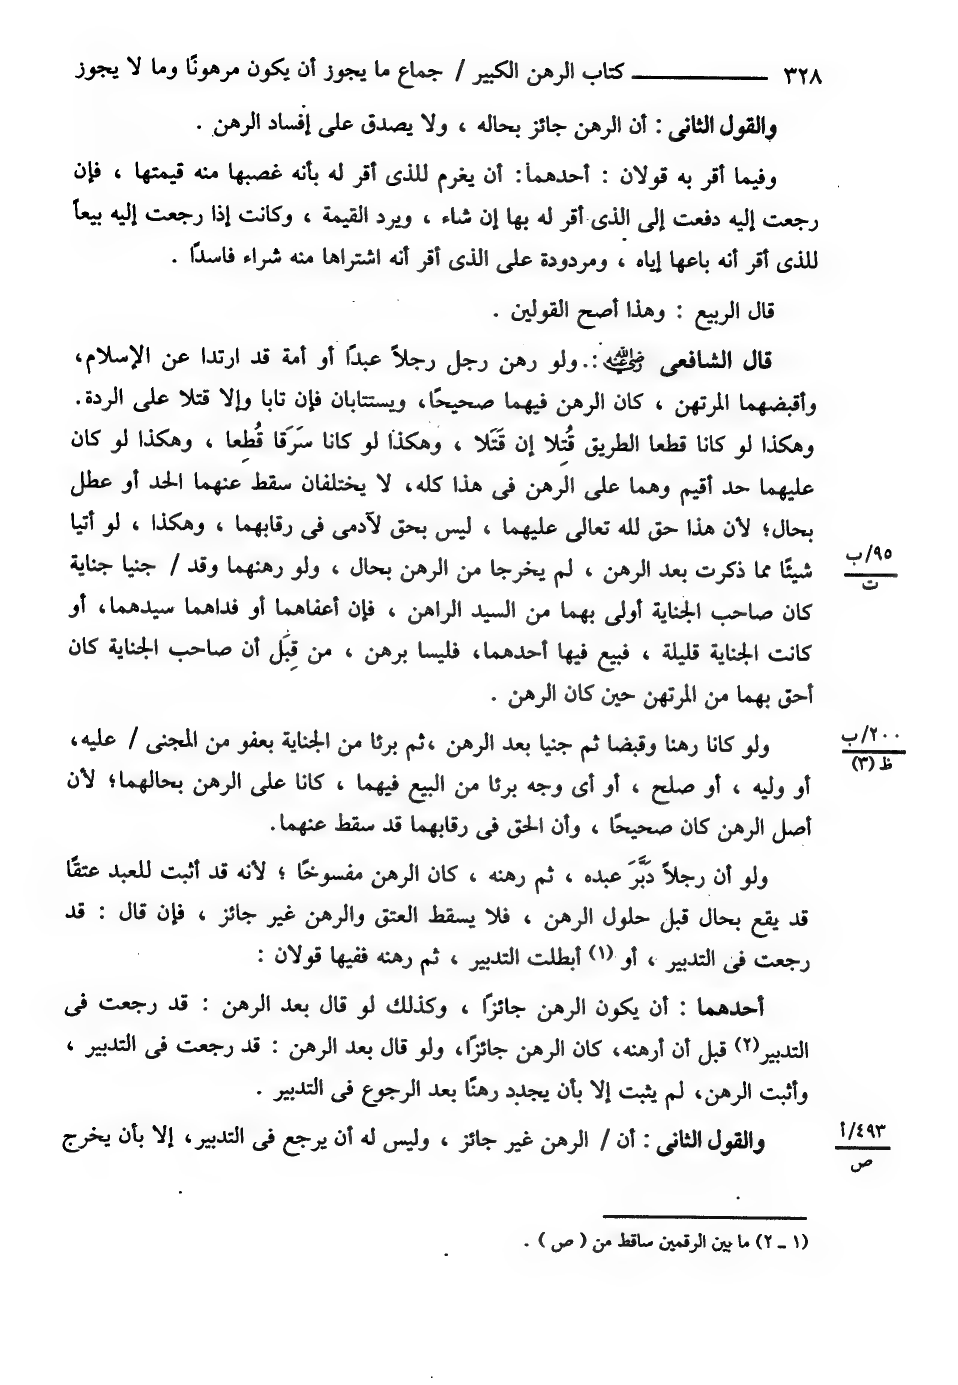 ٣٢٨ ــــــــــــ كتاب الرهن الكبير / جماع ما يجوز أن يكون مرهونًا وما لا يجوز
والقول الثانى : أن الرهن جائز بحاله ، ولا يصدق على إفساد الرهن .
وفيما أقر به قولان : أحدهما: أن يغرم للذى أقر له بأنه غصبها منه قيمتها ، فإن
رجعت إليه دفعت إلى الذى أقر له بها إن شاء ، ويرد القيمة ، وكانت إذا رجعت إليه بيعاً
للذى أقر أنه باعها إياه ، ومردودة على الذى أقر أنه اشتراها منه شراء فاسدًا .
قال الربيع : وهذا أصح القولين .
قال الشافعى رضي الله عنه : ولو رهن رجل رجلاً عبدًا أو أمة قد ارتدا عن الإسلام،
وأقبضهما المرتهن ، كان الرهن فيهما صحيحًا، ويستتابان فإن تابا وإلا قتلا على الردة.
وهكذا لو كانا قطعا الطريق قُتِلا إن قَتَلا ، وهكذا لو كانا سَرَقا قُطِعا ، وهكذا لو كان
عليهما حد أقيم وهما على الرهن فى هذا كله، لا يختلفان سقط عنهما الحد أو عطل
بحال؛ لأن هذا حق لله تعالى عليهما ، ليس بحق لآدمى فى رقابهما ، وهكذا ، لو أتيا
شيئًا مما ذكرت بعد الرهن ، لم يخرجا من الرهن بحال ، ولو رهنهما وقد / جنيا جناية
٩٥/ب
ت
كان صاحب الجناية أولى بهما من السيد الراهن ، فإن أعفاهما أو فداهما سيدهما، أو
كانت الجناية قليلة ، فبيع فيها أحدهما، فليسا برهن ، من قِبَلِ أن صاحب الجناية كان
أحق بهما من المرتهن حين كان الرهن .
ولو كانا رهنا وقبضا ثم جنيا بعد الرهن ،ثم برئا من الجناية بعفو من المجنى / عليه،
٢٠٠/ب
ظ (٣)
أو وليه ، أو صلح ، أو أى وجه برئا من البيع فيهما ، كانا على الرهن بحالهما؛ لأن
أصل الرهن كان صحيحًا ، وأن الحق فى رقابهما قد سقط عنهما.
ولو أن رجلاً دَبَّرَ عبده ، ثم رهنه ، كان الرهن مفسوخًا ؛ لأنه قد أثبت للعبد عتقًا
قد يقع بحال قبل حلول الرهن ، فلا يسقط العتق والرهن غير جائز ، فإن قال : قد
رجعت فى التدبير ، أو (١) أبطلت التدبير ، ثم رهنه ففيها قولان :
أحدهما : أن يكون الرهن جائزًا ، وكذلك لو قال بعد الرهن : قد رجعت فى
التدبير(٢) قبل أن أرهنه، كان الرهن جائزًا، ولو قال بعد الرهن : قد رجعت فى التدبير ،
وأثبت الرهن، لم يثبت إلا بأن يجدد رهنًا بعد الرجوع فى التدبير .
والقول الثانى : أن / الرهن غير جائز ، وليس له أن يرجع فى التدبير، إلا بأن يخرج
٤٩٣/أ
ص
(١ ـ ٢) ما بين الرقمين ساقط من ( ص ) .